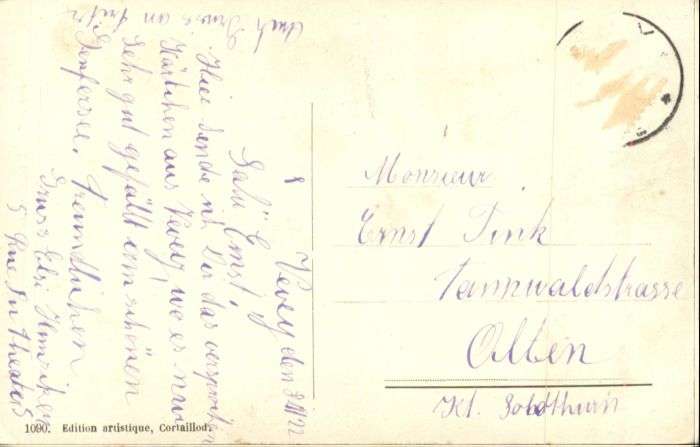 Vevey den
Salü Ernst,
Hier sende ich Dir das versprochene
Kärtchen aus Vevey, wo es mir
sehr gut gefällt am schönen
Genfersee. Freundlichen
Gruss Elsi
5 Rue du Theatre 5
Auch Gruss an Fritz
Monsieur
Ernst Fink
Tannwaldstrasse
Olten
Kt. Solothurn
1090. Edition artistique, Cortaillod.